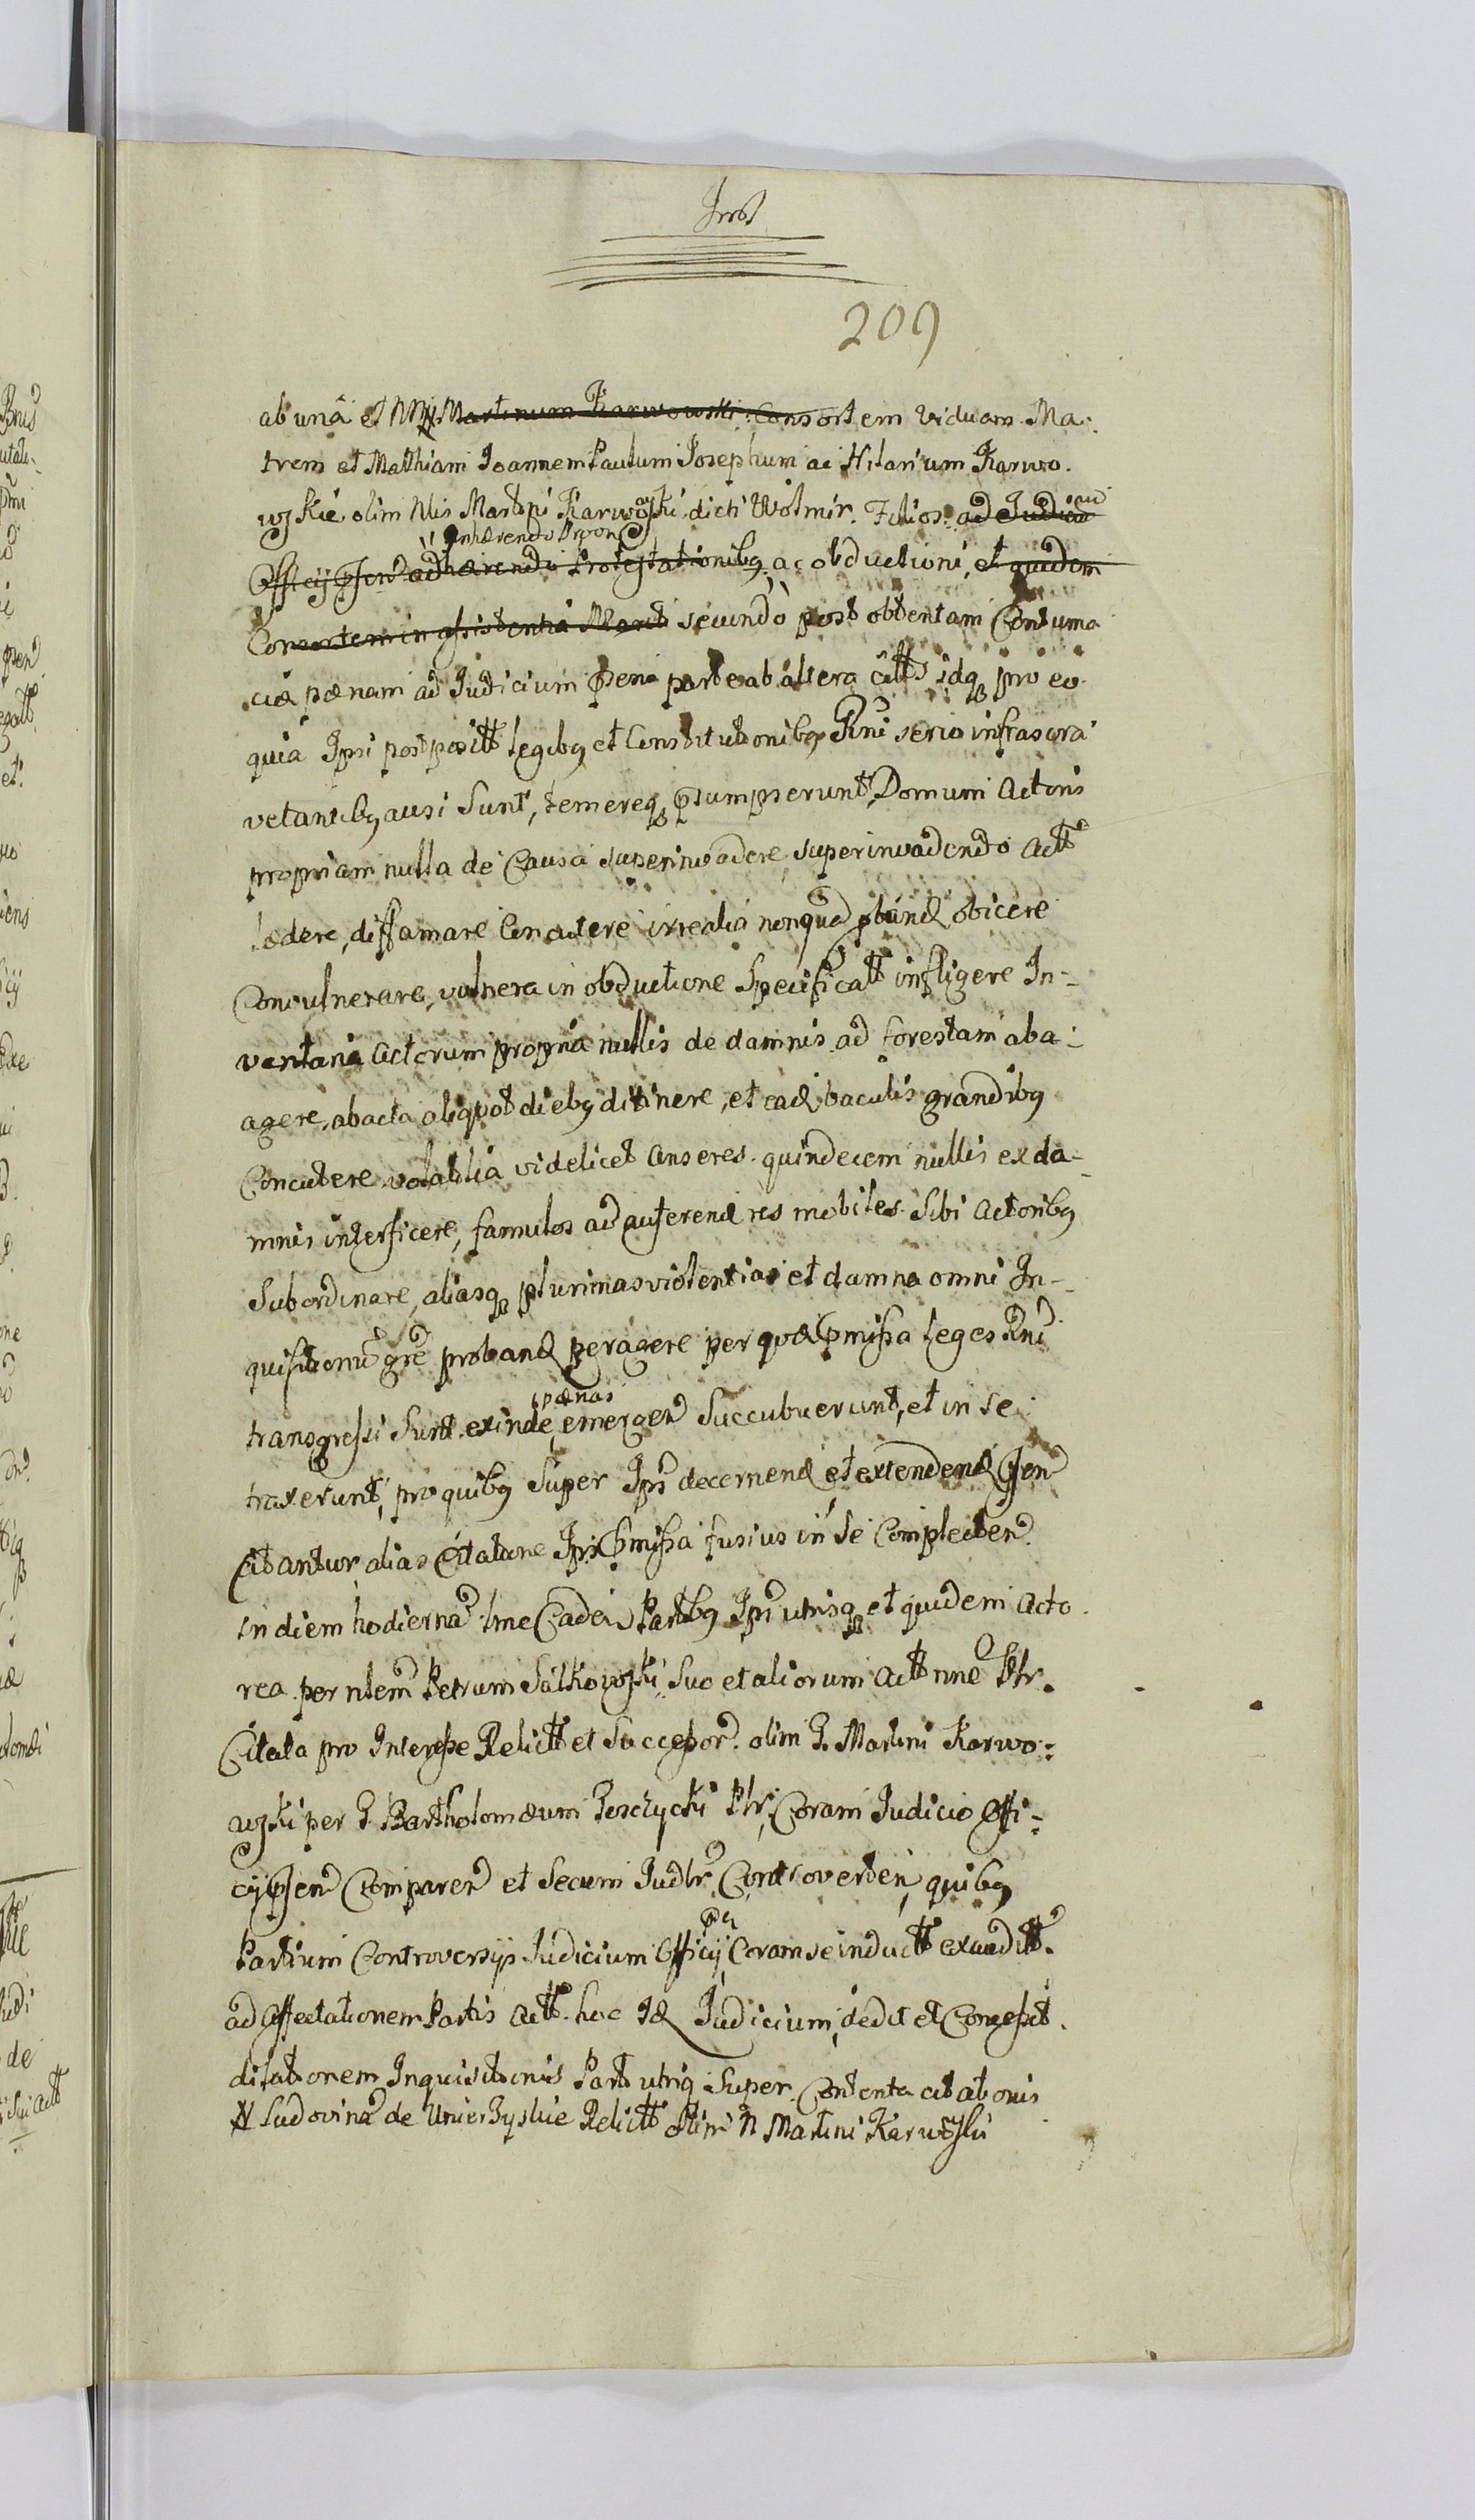 209
ab unâ et Martinum Karwowski Consortem viduam Ma-
trem et Mathiam Joannem Paulum Josephum ac Hilarium Karwo-
wskie olim Nlis Martini Karwowski dicti Wolmir. Filios ad Judicium
inhærendo
Officij adhærendo Protestationibq ac obductioni, et quidem
Consortem in assistentia Mariti secundo post obtentam Contuma
ciæ pœnam ad Judicium parte ab altera idq pro eo
quia Ipsi postposit legibq et Constitutionibq Rni serio infrascra
vetantibq ausi sunt, temereq psumpserunt, Domum Actoris
propriam nulla de Causa superinvadere, superinvadendo Act
lædere, diffamare Concutere irrealia nonquam obicere
Convulnerare, vulnera in obductione specificatt infligere In-
ventaria Actorum propria nullis de damnis ad forestam aba-
agere, abacta aliquot diebq ditinere, et baculis grandibq
Concutere volatilia videlicet Anseres quindecem nullis ex da-
mnis interficere, famulos ad auferend res mobiles Sibi Actoribq
Subordinare, aliasq plurimas violentias et damna omni In-
quisitionu gre proband peragere per quæ pmissa leges Rni
pænas
transgressi sunt exinde emergen succubuerunt, et in se
traxerunt, pro quibq super Ips decernend et extendend
Citantur alias Citatione Ips pmissa fusius in se Complecten
in diem hodierna tme Caden Partibq Ips utrisq et quidem Acto
rea per nlem Petrum Sałkowski suo et aliorum Act nne Plr.
Citata pro Interesse Relict et Successor olim G. Martini Karwo-
wski per G Bartholomæum Plr Coram Judicio Offi-
cij psen Comparen et secum Judlr Controverten, quibq
Partium Controversijs Judicium Officij Coram se induct exaudit
ad Affectationem Partis Act hoc Id Judicium, dedit et Concessit
dilationem Inquisitionis Part utriq super Contenta citationis
N Ludovina de Relict olim N Martini Karwowski